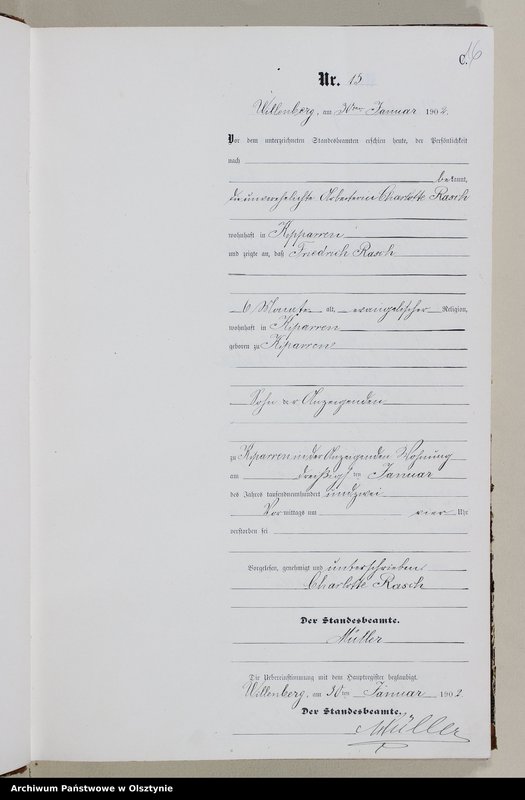 C.
16
Nr. 15
Willenberg, am 30ten Januar 1902.
Vor dem unterzeichneten Standesbeamten erschien heute, der Persönlichkeit
nach
bekannt,
die unverehelichte Arbeiterin Charlotte Rasch
wohnhaft in Kipparren
und zeigte an, daß Friedrich Rasch
6 Monate alt, evangelischer Religion,
wohnhaft in Kiparren
geboren zu Kiparren
Sohn der Anzeigenden
zu Kiparren in der Anzeigenden Wohnung
am dreißigsten Januar
des Jahres tausendneunhundert und zwei
Vormittags um vier Uhr
verstorben sei
Vorgelesen, genehmigt und unterschrieben
Charlotte Rasch
Der Standesbeamte.
Müller
Die Uebereinstimmung mit dem Hauptregister beglaubigt.
Willenberg, am 30ten Januar 1902.
Der Standesbeamte.
Müller
Archiwum Państwowe w Olsztynie